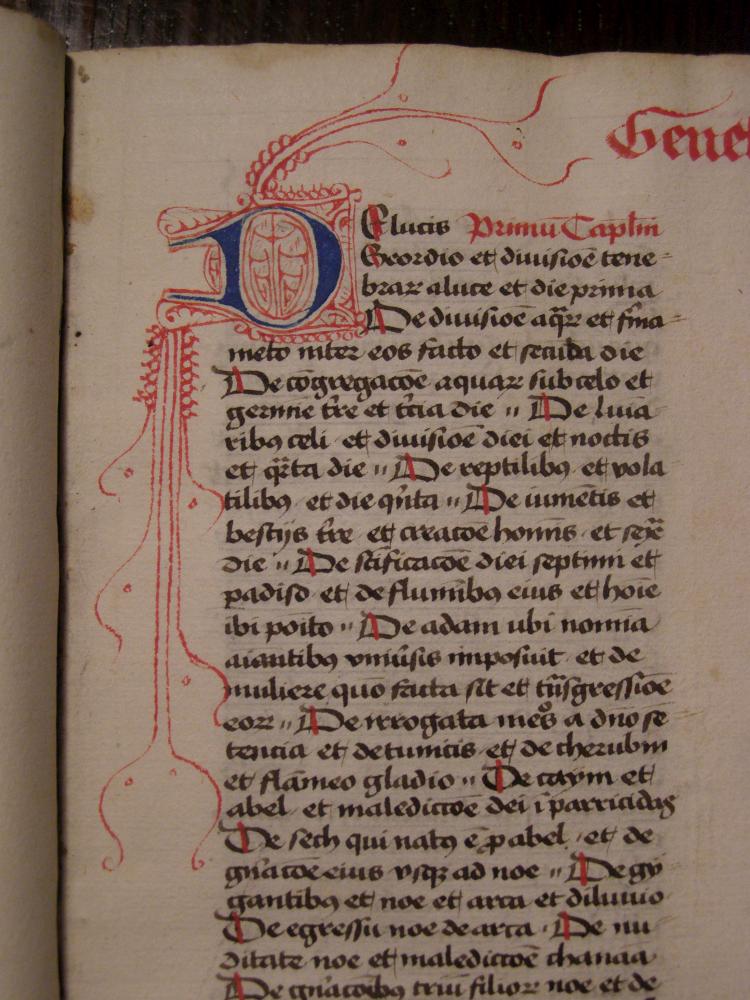 Genes
D Elucis Primū Caplm
Exordio et diuisiōe tene
braꝝ aluce et die prima
De diuisiōe aq̄ꝝ et firma
mēto inter eos facto et secūda die
De cōgregacōe aquaꝝ sub celo et
germīe tr̄e et tͨcia die〃 De lūīa
ribꝰ celi et diuisiōe diei et noctis
et qr̄ta die〃 De reptilibꝰ et vola
tilibꝰ et die qͥnta〃 De iumētis et
bestijs tr̄e et creacōe homīs et sex̄
die〃 De sc̄ificacōe diei septimi et
padiso et de flumībꝰ eius et hoīe
ibi poīto〃 De adam ubi nomīa
aīantibꝰ vniūsis imposuit et de
muliere quō facta sit et tn̄sgressiōe
eoꝝ〃 De irrogata in eos a dn̄o sē
tencia et de tunicis et de cherubin
et flāmeo gladio〃 De caym et
abel et maledictōe dei ī parricidas
De seth qui natꝰ ē ꝓ abel et de
gn̄acōe eius vsqꝫ ad noe〃 De gy
gantibꝰ et noe et arca et diluuio
De egressu noe de arca De nu
ditate noe et maledictōe chanaā
De gn̄acōibꝰ triū filioꝝ noe et de